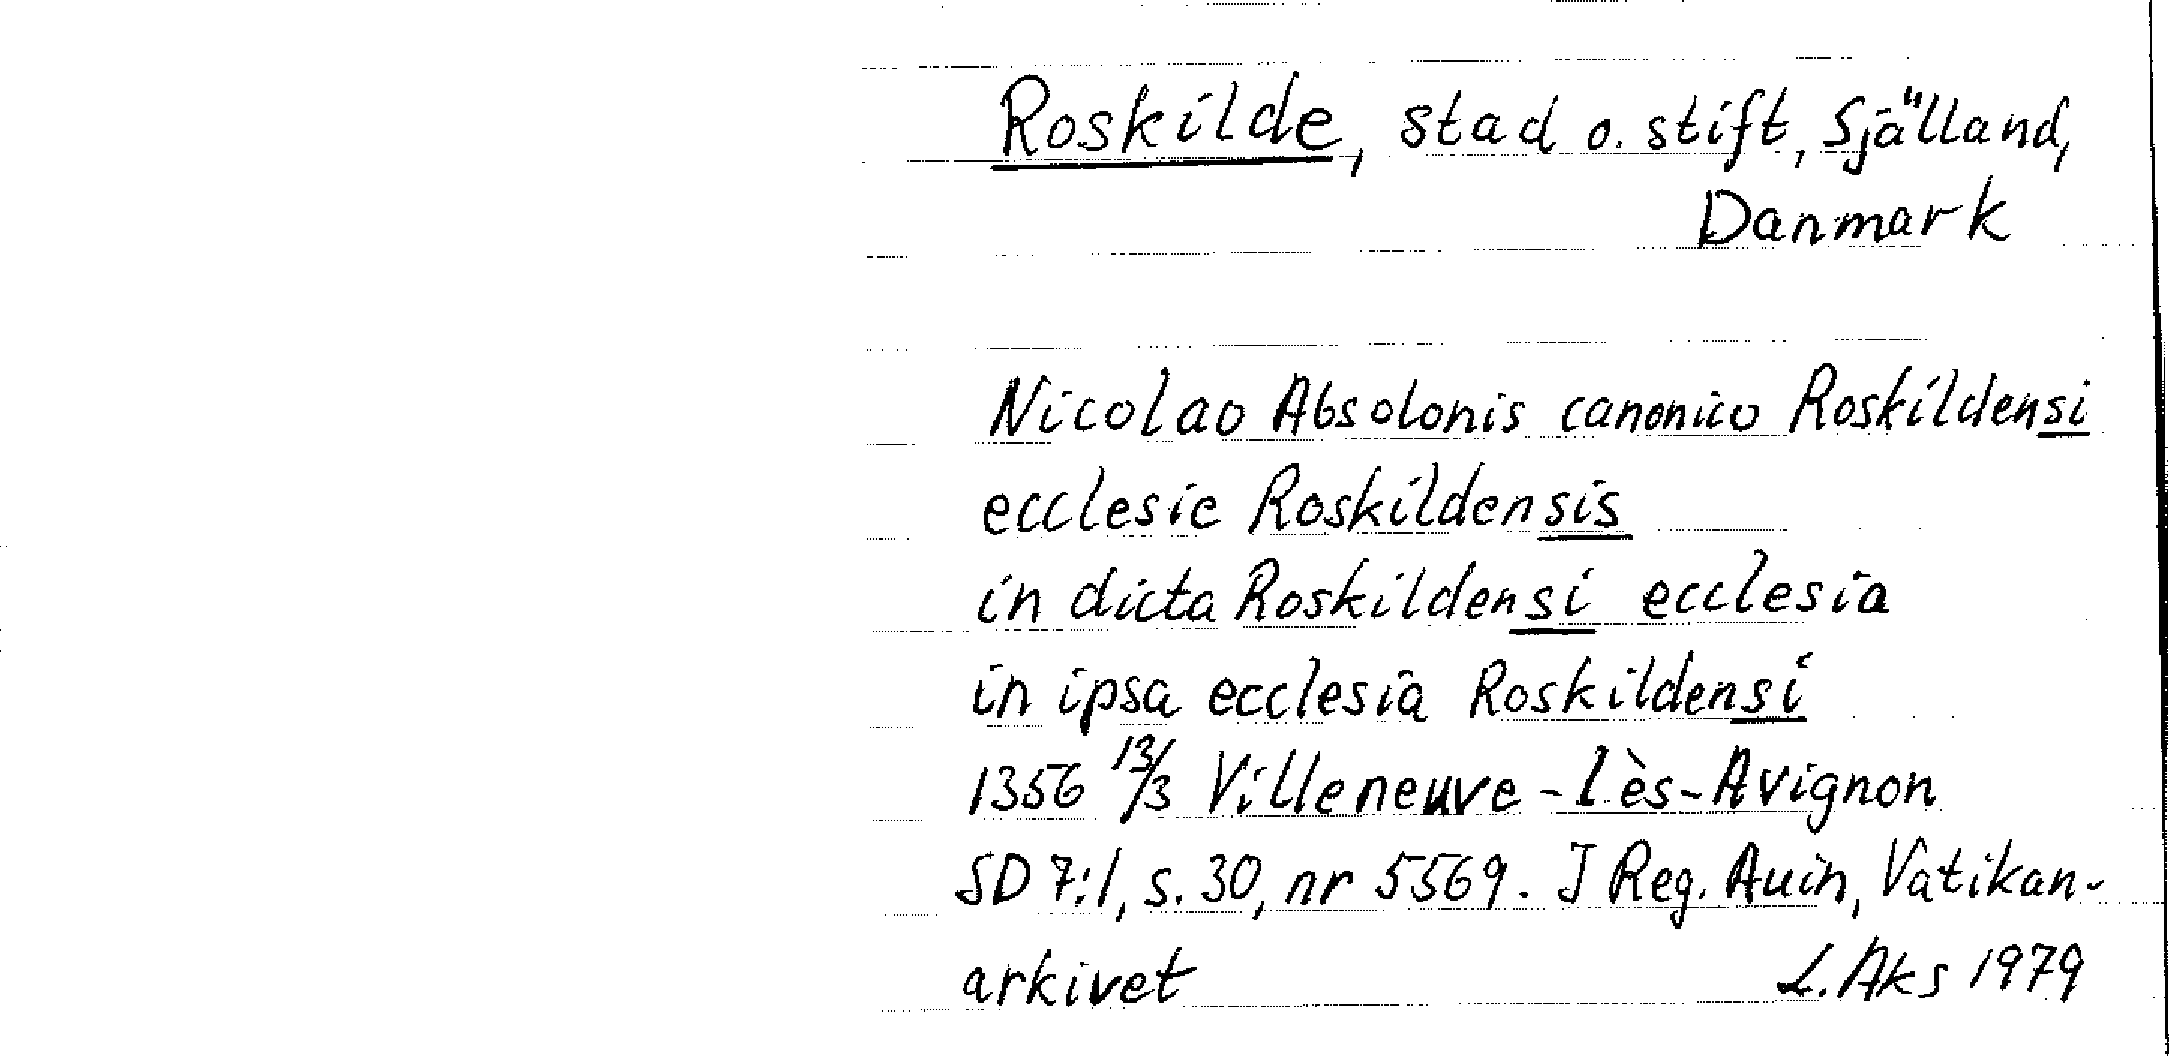 Roskilde, stad o. stift, Själland,
Danmark
Nicolao Absolonis canonico Roskildensi
ecclesie Roskildensis
in dicta Roskildensi ecclesia
in ipsa ecclesia Roskildensi
1356 13/3 Villeneuve-lès-Avignon
SD 7:1, s. 30, nr 5569. I Reg. Auin, Vatikan-
arkivet L. Aks 1979